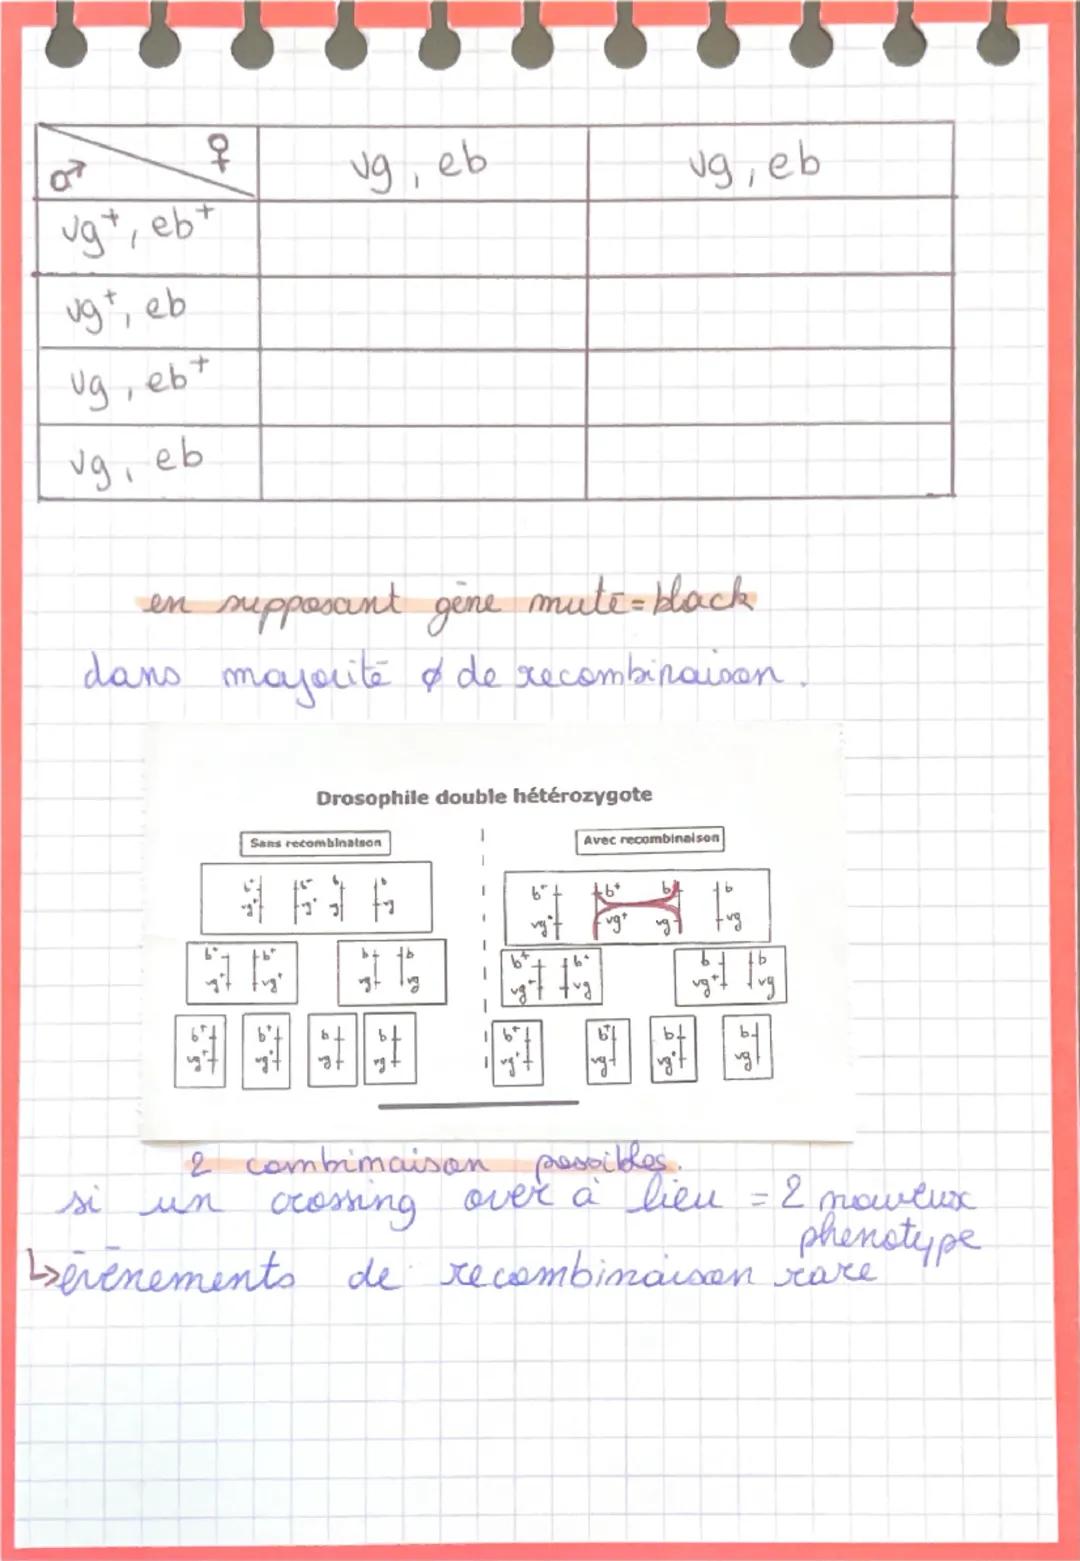 ♂ ♀ vg, eb vg, eb
vg+, eb+
vg+, eb
vg, eb+
vg, eb
en supposant gène muté = black
dans majorité ø de recombinaison.
Drosophile double hétérozygote
Sans recombinaison
Avec recombinaison
b+ b+ b b
vg+ vg+ vg vg
b+ b+ b b
vg+ vg+ vg vg
b+ b+ b b
vg+ vg+ vg vg
b+ b+ b b
vg+ vg+ vg vg
b+ b+ b b
vg+ vg vg+ vg
b+ b+ b b
vg+ vg vg+ vg
2 combinaison possibles.
si un crossing over à lieu = 2 nouveux
phenotype
↳évènements de recombinaison rare